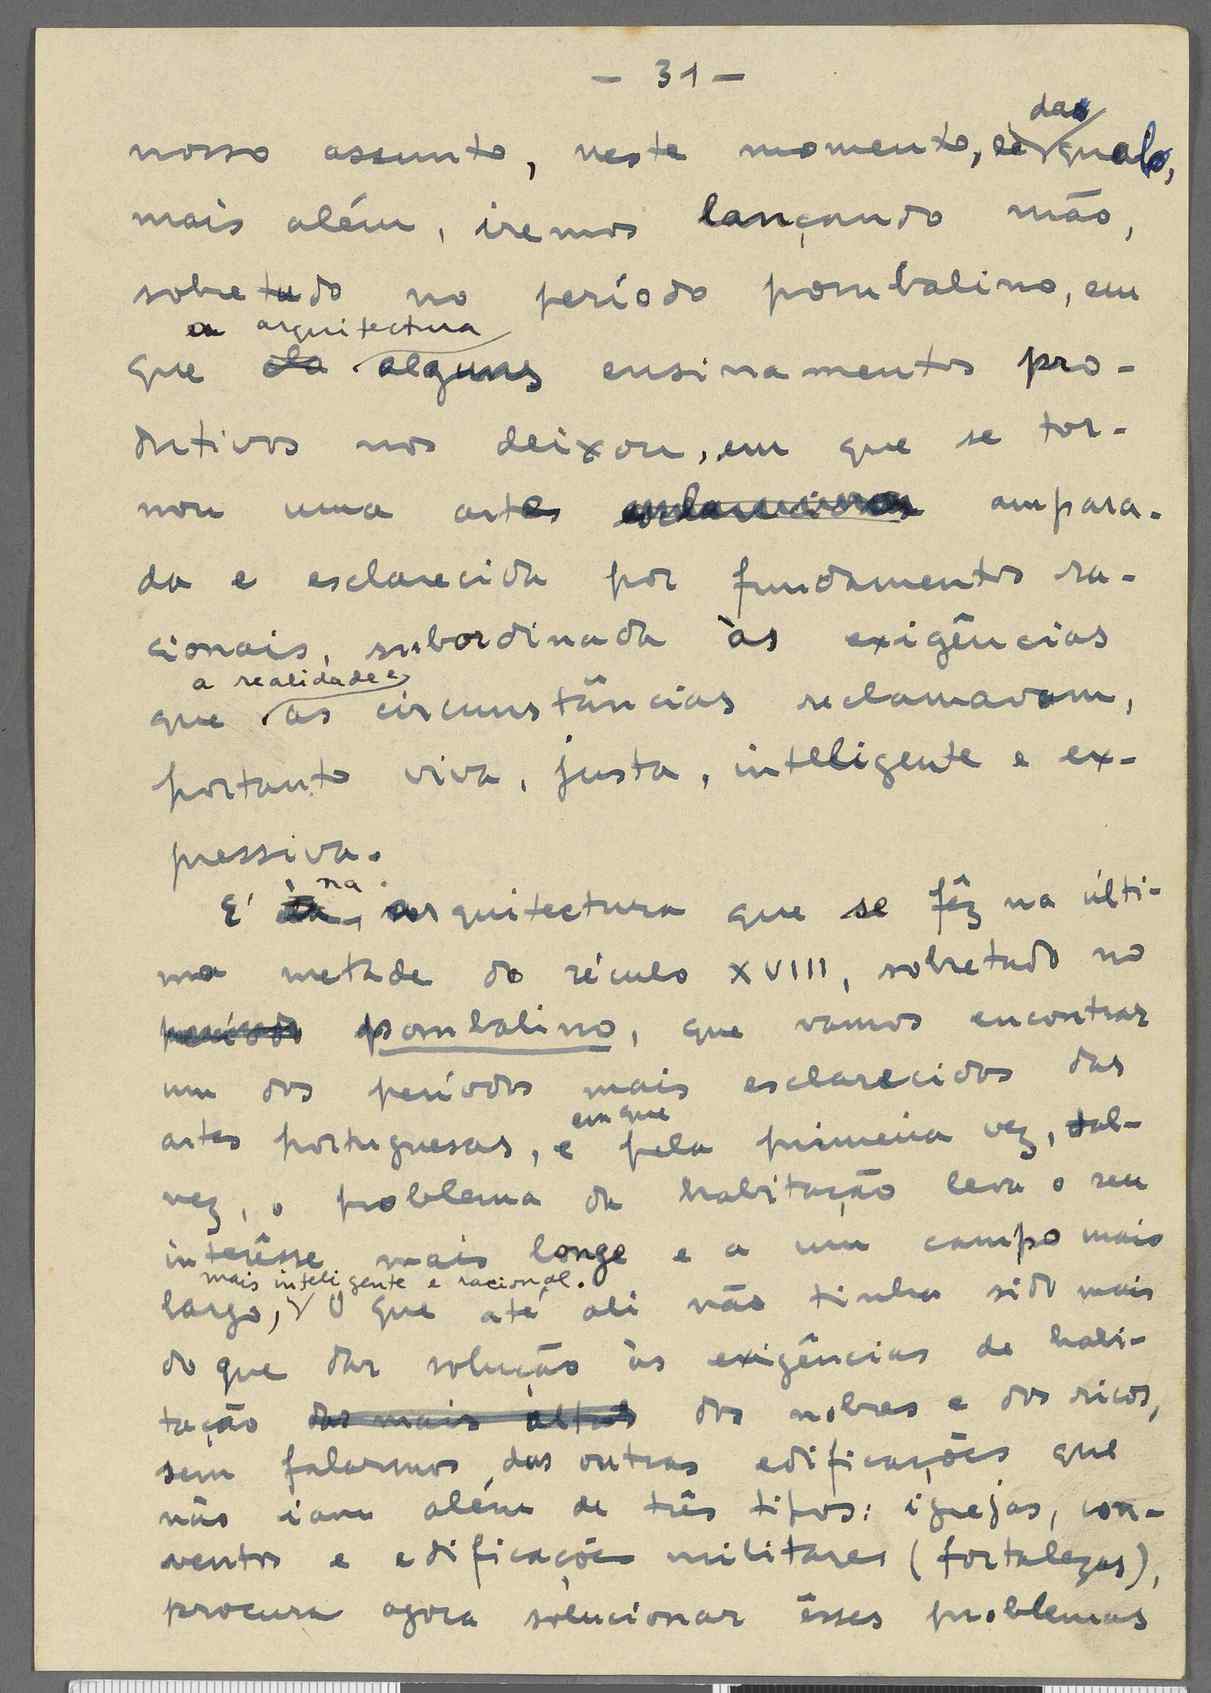 - 31 -
das
nosso assunto, neste momento, quals,
mais além, iremos lançando mão,
sobretudo no período pombalino, em
a arquitectura
que ela alguns ensinamentos pro-
dutivos nos deixou, em que se tor-
nou uma artes ampara-
da e esclarecida por fundamentos ra-
cionais, subordinada às exigências
a realidade e
que as circunstâncias reclamavam,
portanto viva, justa, inteligente e ex-
pressiva.
na
E' arquitectura que se fêz na últi-
ma metade do século XVIII, sobretudo no
período pombalino, que vamos encontrar
um dos períodos mais esclarecidos das
em que
artes portuguesas, e pela primeira vez, tal-
vez, o problema da habitação leva o seu
interêsse mais longe e a um campo mais
mais inteligente e racional.
largo, O que até ali não tinha sido mais
do que dar solução às exigências de habi-
tação das mais altas dos nobres e dos ricos,
sem falarmos das outras edificações que
não iam além de três tipos: igrejas, con-
ventos e edificações militares (fortalezas),
procura agora solucionar êsses problemas